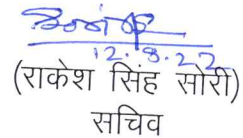 12.9.22
(राकेश सिंह सोरी)
सचिव